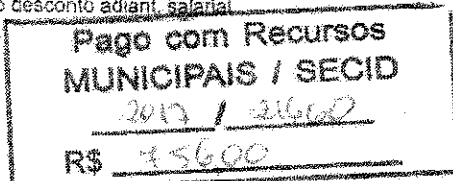 o desconto adiant. salarial
Pago com Recursos
MUNICIPAIS / SECID
2017 / 21660
R$ 75600